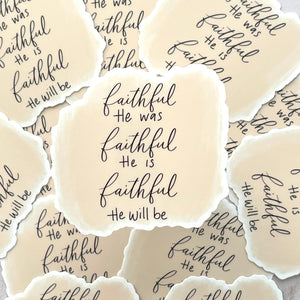 faithful
He was
faithful
He is
faithful
He will be